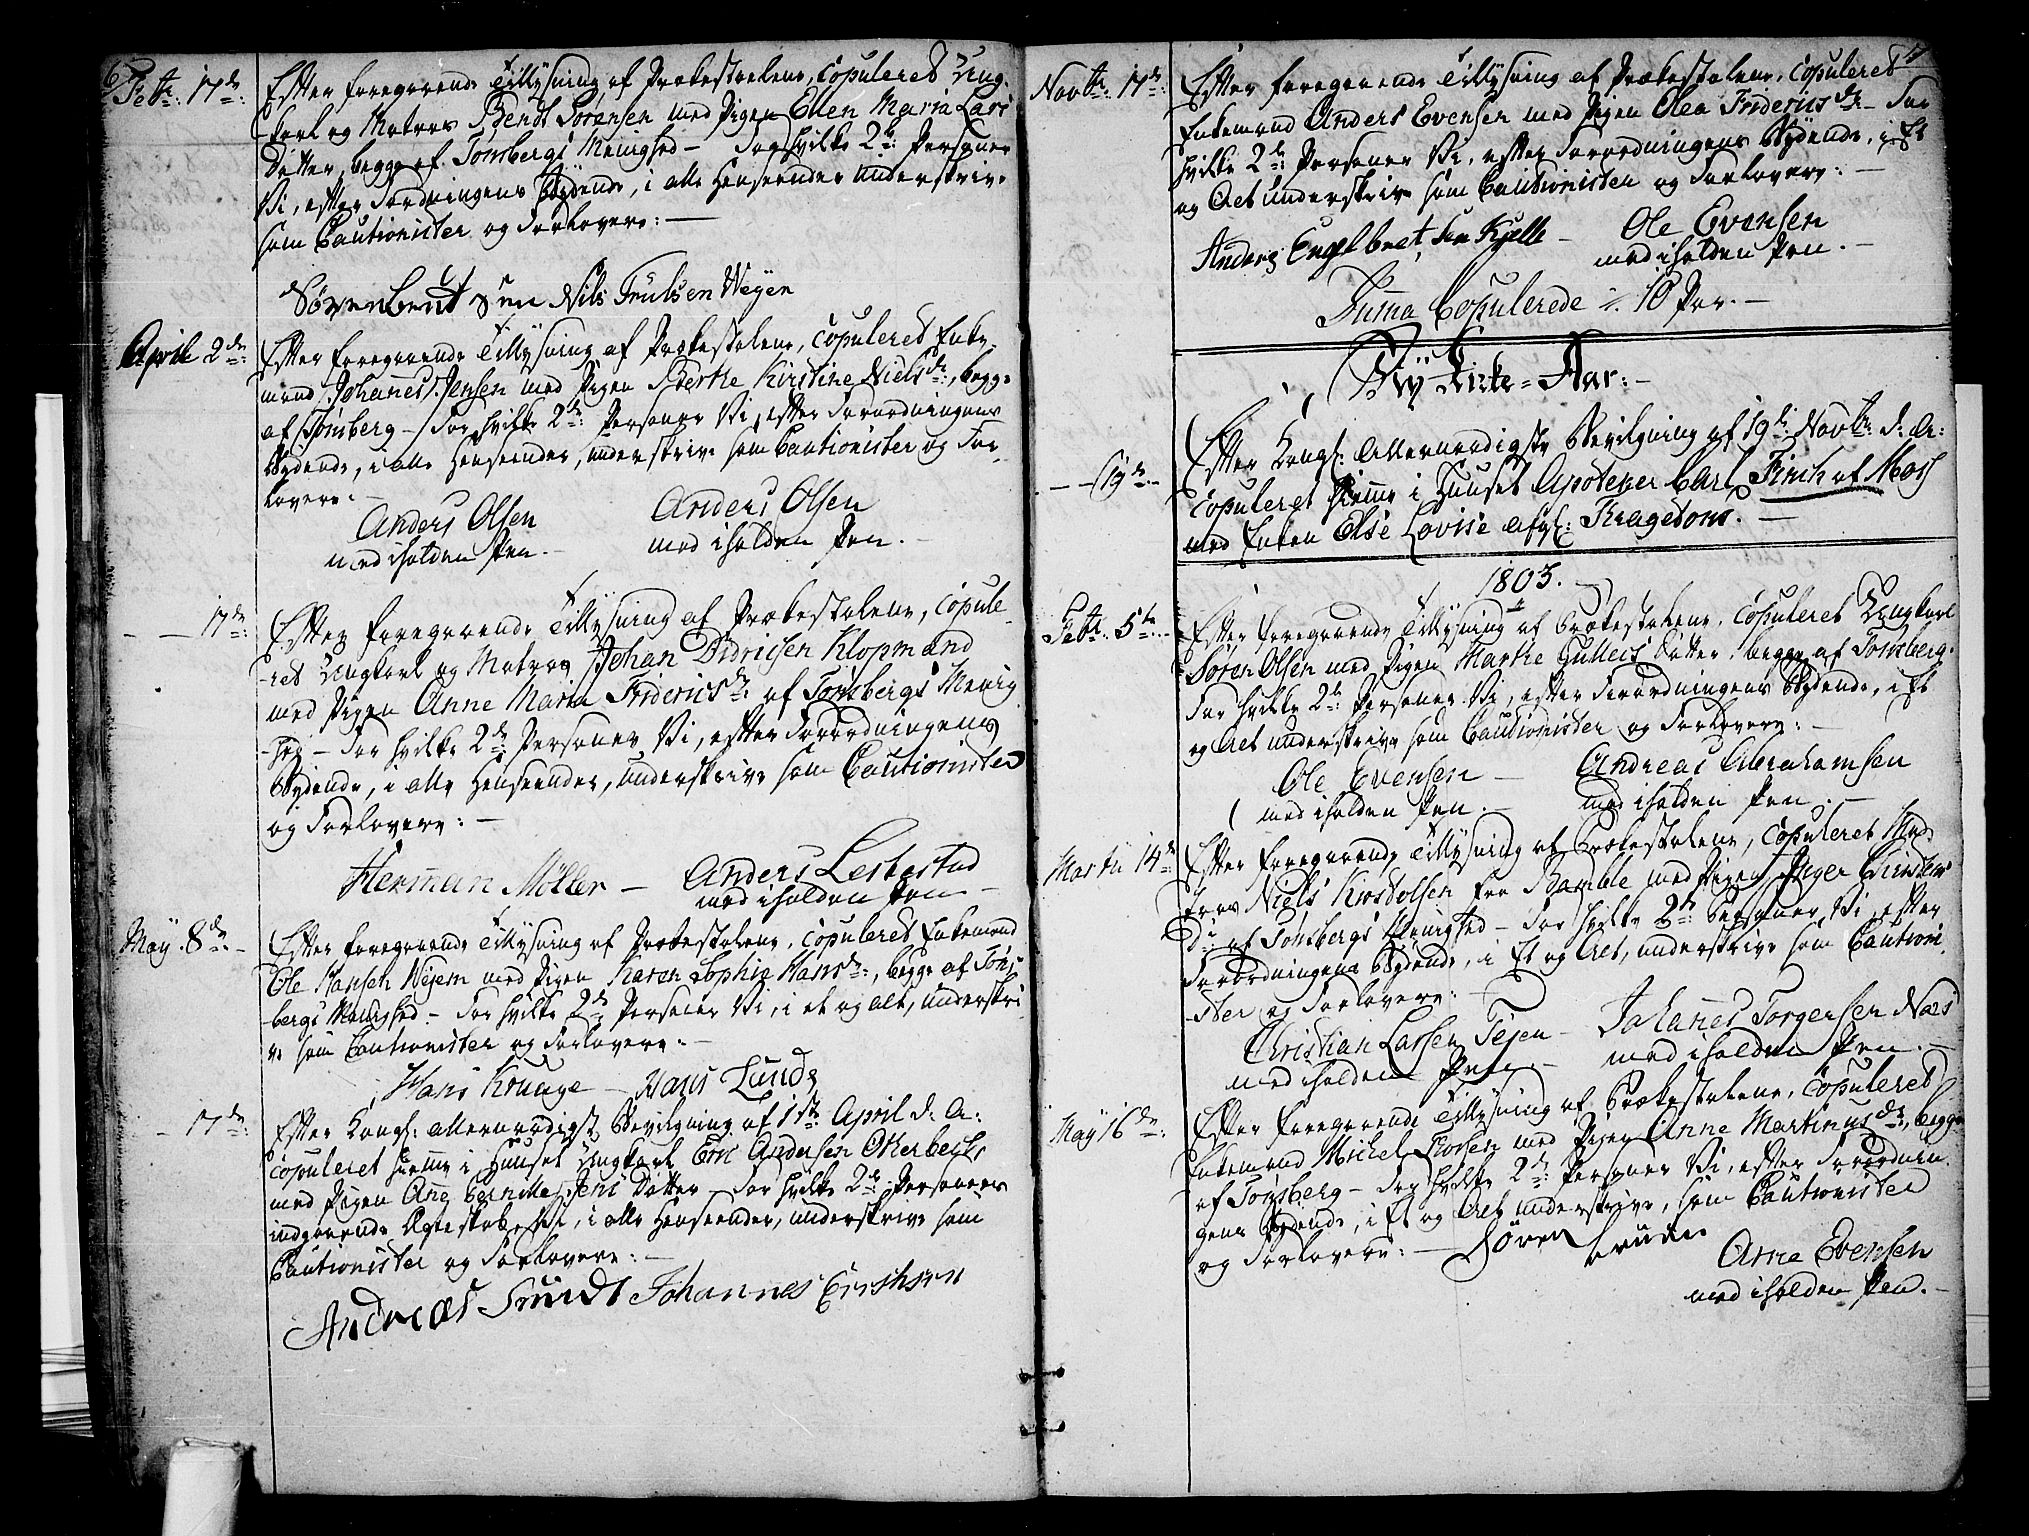 6
Febr: 17de:
Efter foregaaende Tillysning af Prækestolene, Copuleret Ung-
karl og Matros Bendt Sørensen med Pigen Ellen Maria Lars
Datter, begge af Tønsbergs Menighed – For hvilke 2de Personer
Vi, efter Forordningens Bydende, i alle Henseender underskrive
som Cautionister og Forlovere: –
Søren bent sen Nils Trulsen Weyen
April 2de:
Efter foregaaende Tillysning af Prækestolene, Copuleret Enke-
mand Johannes Jensen med Pigen Berthe Kirstine Nielsdr:, begge
af Tønsberg – For hvilke 2de: Personer Vi, efter Forordningens
Bydende, i alle Henseender, underskrive som Cautionister og For-
lovere: –
Anders Olsen Anders Olsen
med iholden Pen. – med iholden Pen. –
– – 17de:
Efter foregaaende Tillysning af Prækestolene, Copule-
ret Ungkarl og Matros Johan Didrichsen Klopmand
med Pigen Anne Maria Fridericsdr: af Tønsbergs Menig-
hed – For hvilke 2de Personer Vi, efter Forordningens
Bydende, i alle Henseender, underskrive som Cautionister
og Forlovere: –
Herman Möller – Anders Lebestad
med iholden Pen –
May. 8de: –
Efter foregaaende Tillysning af Prækestolene, Copuleret Enkemand
Ole Hansen Wejem med Pigen Karen Sophie Hansdr:, begge af Tøns-
bergs Menighed – For hvilke 2de Personer Vi, i et og alt, underskri-
ve som Cautionister og Forlovere: –
Hans Kruuge – Hans Lund
– 17de:
Efter Kongl: allernaadigst Bevilgning af 1ste April d: A:
Copuleret hiemme i Huuset Ungkarl Eric Andersen Okerbech,
med Pigen Ane Bernille Jens Datter – For hvilke 2de: Personers
indgaaende Ægteskab Vi, i alle Henseender, underskrive som
Cautionister og Forlovere: –
Andreas Smidt Johannes Erichsen
Novbr: 17de:
Efter foregaaende Tillysning af Prækestolene, Copuleret
Enkemand Anders Evensen med Pigen Olea Fridericsdr – For
hvilke 2de: Personer Vi, efter Forordningens Bydende, i Et
og Alt underskrive som Cautionister og Forlovere: –
Anders Engelbret sen Kjelle – Ole Evensen
med iholden Pen. –
Suma Copulerede 10 Par. –
Ny Kirke=Aar: –
– – 19de. –
Efter Kongl: Allernaadigste Bevilgning af 19de: Novbr: d: A:
Copuleret hiemme i Huuset Apoteker Carl Finch af Moss
med Enken Else Lovise afgl: Kragetons. –
1803.
Febr. 5te: –
Efter foregaaende Tillysning af Prækestolene, Copuleret Ungkarl
Søren Olsen med Pigen Marthe Gulleics Datter, begge af Tønsberg.
For hvilke 2de: Personer Vi, efter Forordningens Bydende, i Et
og Alt underskrive som Cautionister og Forlovere: –
Ole Evensen – Andreas Abrahamsen
med iholden Pen. – med iholden Pen. –
Martii 14de
Efter foregaaende Tillysning af Prækestolene, Copuleret
Niels Kiostolsen fra Bamble med Pigen Inger
af Tønsbergs Menighed – For hvilke 2de: Personer Vi, efter
Forordningens Bydende, i Et og Alt, underskrive som Cautioni-
ster og Forlovere: –
Christian Larsen Tejen – Johanes Torgersen Næs
med iholden Pen. – med iholden Pen. –
May 16de:
Efter foregaaende Tillysning af Prækestolene, Copuleret
Enkemand Michel Larsen med Pigen Anne Martinusdr, begge
af Tønsberg – For hvilke 2de: Personer Vi, efter Forordnin-
gens Bydende, i Et og Alt underskrive, som Cautionister
og Forlovere: – Søren
Arne Evensen
med iholden Pen. –